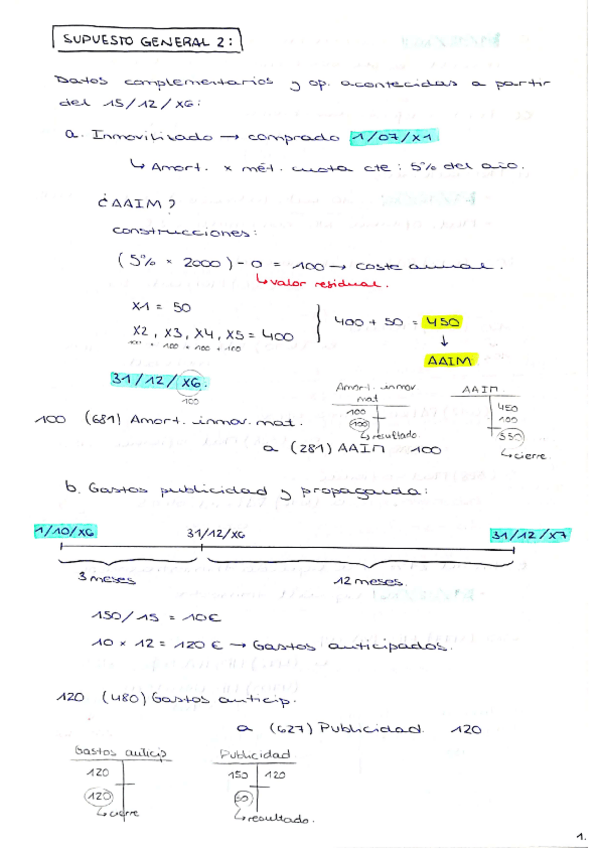 SUPUESTO GENERAL 2:
Datos complementarios y op. acontecidas a partir
del 15/12/X6:
a. Inmovilizado → comprado 1/07/X1
↳ Amort. x mét. cuota cte: 5% del año.
¿AAIM?
construcciones:
(5% × 2000) - 0 = 100 → coste anual.
↳ valor residual.
X1 = 50
X2, X3, X4, X5 = 400
100 + 100 + 100 + 100
400 + 50 = 450
↓
AAIM
31/12/X6.
100
Amort. inmov
mat
100
100
↳ resultado
AAIM
450
100
550
↳ cierre
100 (681) Amort. inmov. mat.
a (281) AAIM 100
b. Gastos publicidad y propaganda:
1/10/X6 31/12/X6 31/12/X7
3 meses 12 meses.
150/15 = 10€
10 × 12 = 120 € → Gastos anticipados.
120 (480) Gastos anticip.
a (627) Publicidad. 120
Gastos anticip
120
120
↳ cierre
Publicidad
150 120
↳ resultado.
1.